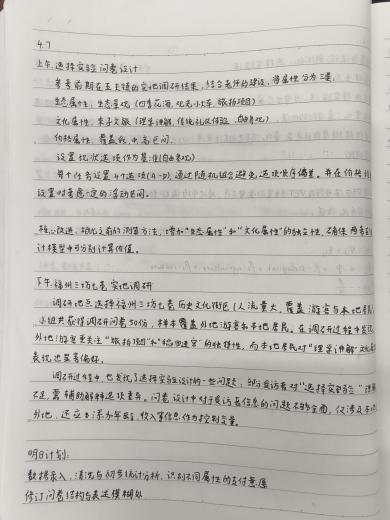 4.7
上午 选择实验问卷设计
参考前期在五夫镇的实地调研结果,结合老师的建议,将属性分为三类,
生态属性:生态景观(四季花海,观光小火车,旅拍项目)
文化属性:朱子文旅(理学讲解,传统礼仪体验,自由参观)
价格属性:覆盖低,中,高区间.
设置现状选项作为基准(自由参观)
每个任务设置4个选项(A-D)通过随机组合避免选项顺序偏差.并在价格
设置时考虑一定的浮动区间.
核心改进:细化之前的测算方法,增加“生态属性”和“文化属性”的独立性,确保
计模型中可分别计算价值.
下午:福州三坊七巷实地调研
调研地点选择福州三坊七巷历史文化街区(人流量大,覆盖游客与本地居民)
小组共获得调研问卷50份,样本覆盖外地游客和本地居民.在调研过程中发现
外地游客更关注“旅拍项目”和“稻田迷宫”的独特性,而本地居民对“理学讲解”文化
表现出显著偏好.
调研过程中,也发现了选择实验设计的一些问题,部分受访者对“选择实验”理解
不足,需辅助解释选项差异.问卷设计中对于受访者信息的问题不够全面,仅涉及
外地,还应当添加年龄,收入等信息作为控制变量.
明日计划:
数据录入,清洗与初步统计分析,识别不同属性的支付意愿
修订问卷结构与表述模糊处